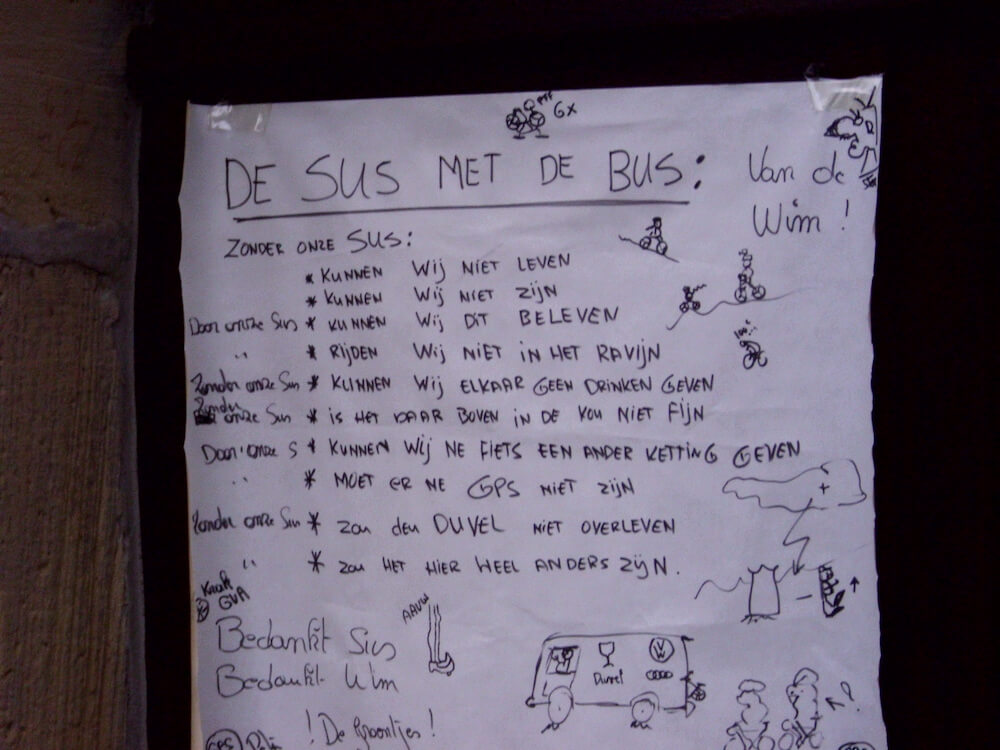 PFF 6x
DE SUS MET DE BUS: Van de
Wim!
ZONDER ONZE SUS:
* KUNNEN Wij NiET LEVEN
* KUNNEN Wij NiET ZijN
Door onze Sus * KUNNEN Wij DiT BELEVEN
" * RijDEN Wij NiET iN HET RAVijN
Zonder onze Sus * KUNNEN Wij ELKAAR GEEN DRINKEN GEVEN
Zonder onze Sus * iS HET DAAR BOVEN iN DE KOU NiET FijN
Door onze S * KUNNEN Wij NE FiETS EEN ANDER KETTING GEVEN
" * MOET ER NE GPS NiET ZijN
Zonder onze Sus * Zou den DUVEL NiET OVERLEVEN
" * Zou HET HiER HEEL ANDERS ZijN.
GVA
AAUW
Bedankt Sus
Bedankt Wim
Duvel
VW
?
! De Groontjes !
GPS